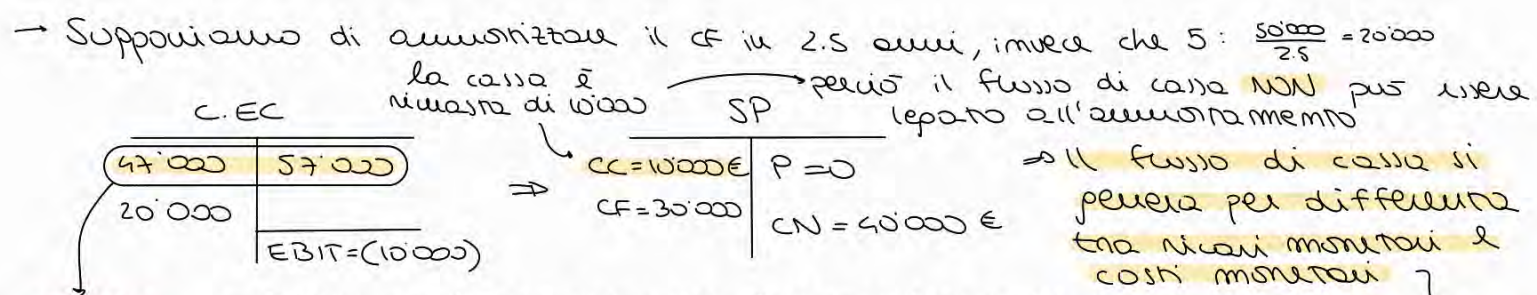 → Supponiamo di ammortizzare il CF in 2.5 anni, invece che 5: 50'000/2.5 = 20'000
la cassa è rimasta di 10'000 → perciò il flusso di cassa NON può essere legato all'ammortamento
C.EC
47'000 | 57'000
20'000
EBIT=(10'000)
⇒
SP
CC=10'000€ | P=0
CF=30'000 | CN=40'000 €
⇒ Il flusso di cassa si
genera per differenza
tra ricavi monetari e
costi monetari